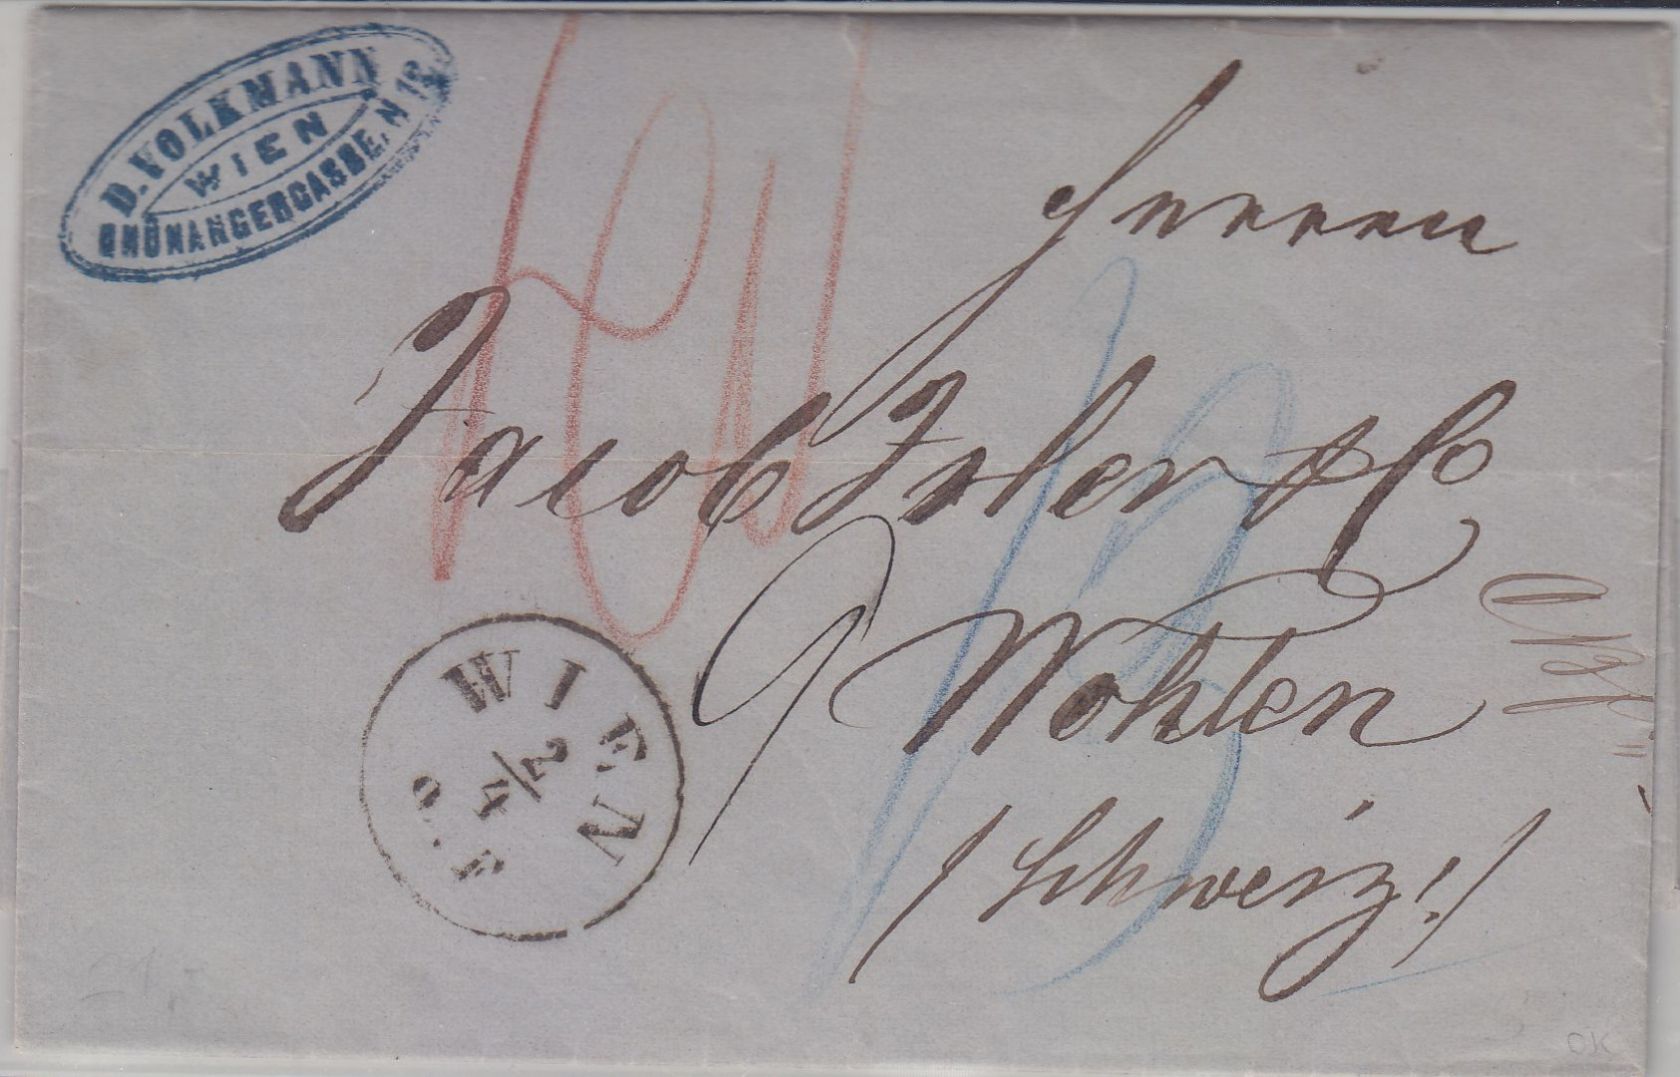 D. VOLKMANN
WIEN
GRÜNANGERGASSE N 12
Herren
Jacob Isler & Co
Wohlen
/Schweiz!/
WIEN
2/4
OK